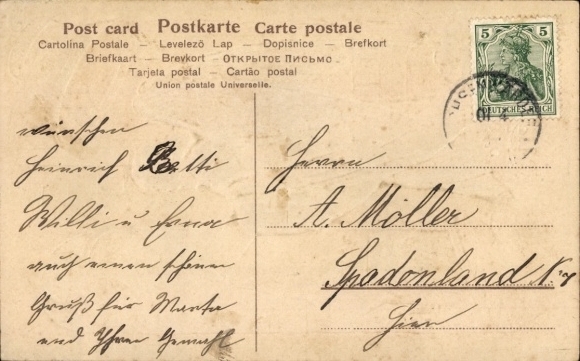 Post card Postkarte Carte postale
Cartolina Postale – Levelező Lap – Dopisnice – Brefkort
Briefkaart – Brevkort – ОТКРЫТОЕ ПИСЬМО
Tarjeta postal – Cartão postal
Union postale Universelle.
5 5
DEUTSCHES REICH
wünschen
Heinrich Betti
Willi u Erna
auch einen schönen
Gruß für Marta
und Ihren Gemahl
Herrn
A. Möller
Spadenland
Hier